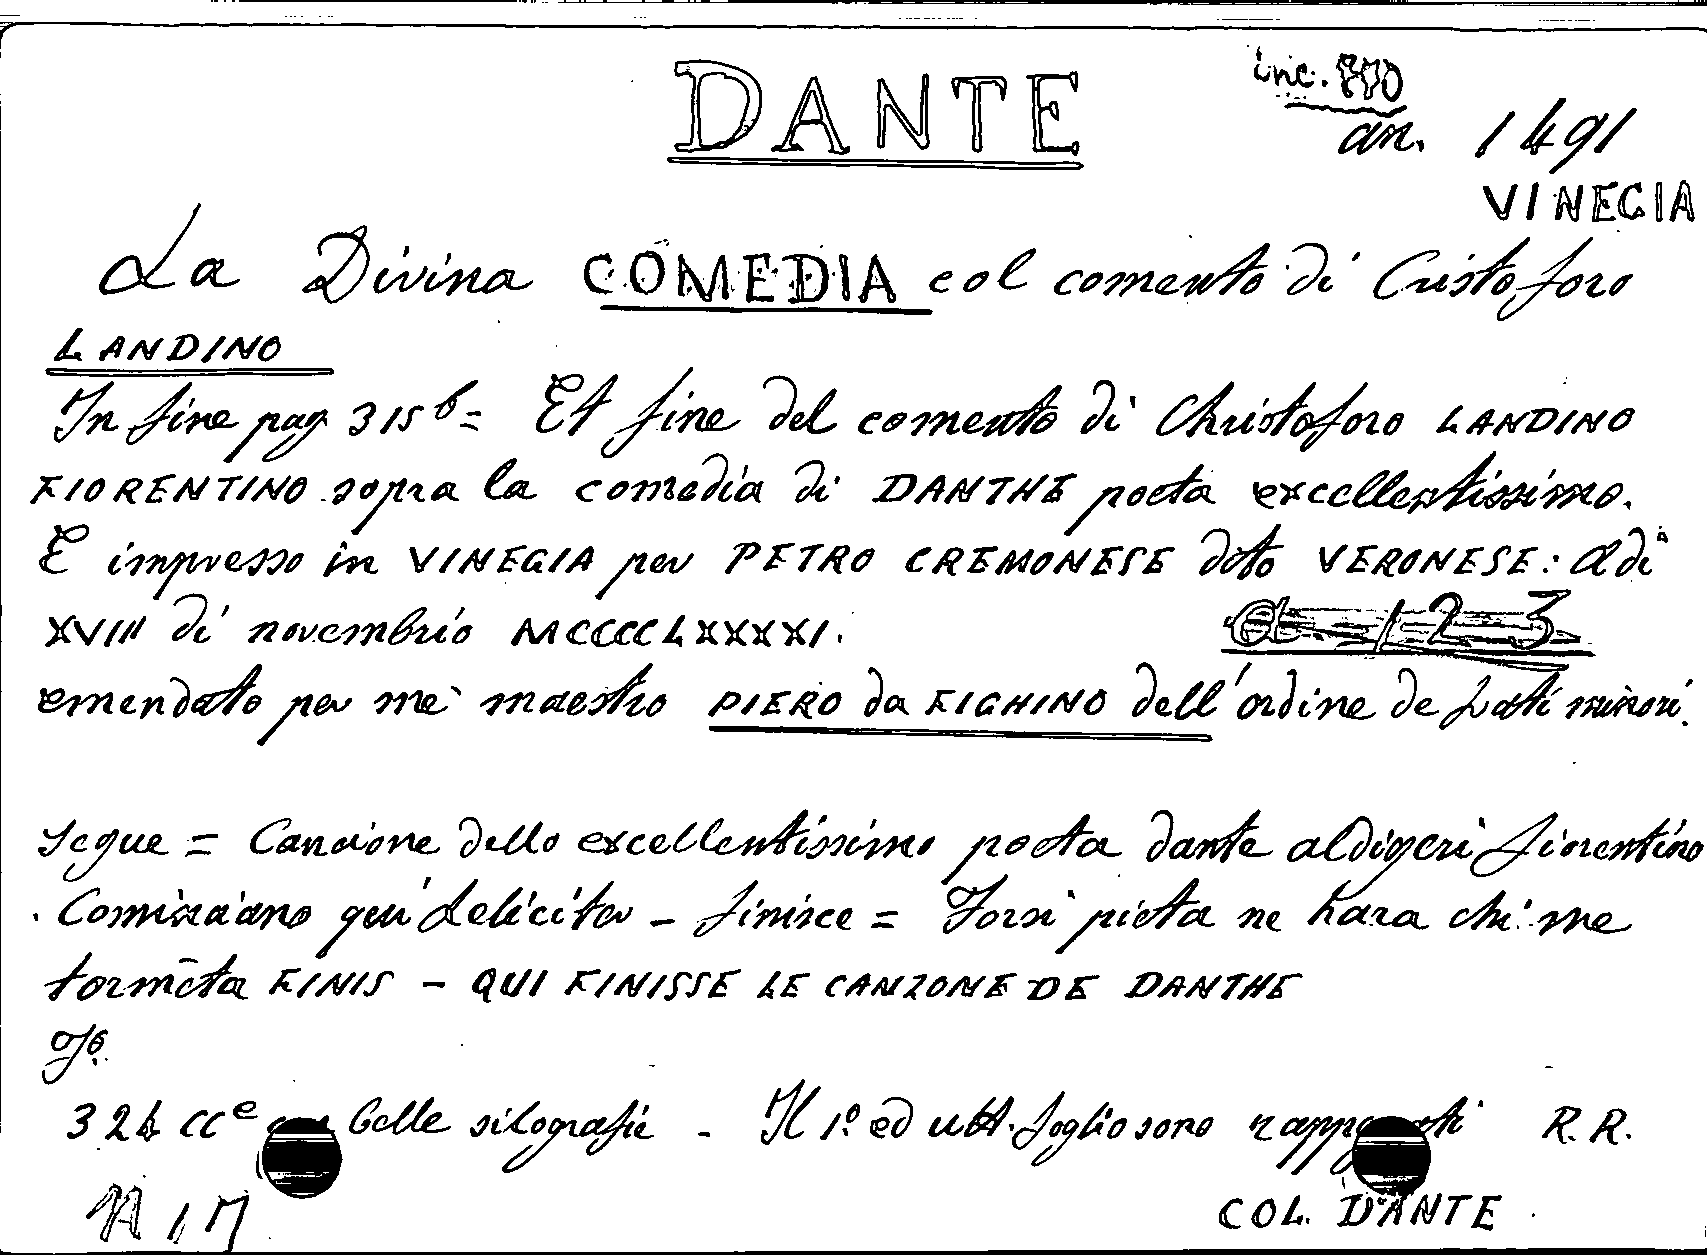 DANTE
inc.
an. 1491
VINEGIA
La Divina COMEDIA col comento di Cristoforo
LANDINO
In fine pag 315b = Et fine del comento di Christoforo LANDINO
FIORENTINO sopra la comedia di DANTHE poeta excellentissimo.
E impresso in VINEGIA per PETRO CREMONESE dito VERONESE: Adi
XVIII di novembrio MCCCCLXXXXI.
emendato per me maestro PIERO da FIGHINO dell'ordine de frati minori.
Segue = Canzione dello excellentissimo poeta dante aldigeri fiorentino
Cominzano qui - finisce = Forsi pieta ne hara chi me
tormēta FINIS - QUI FINISSE LE CANZONE DE DANTHE
f°
324 cce belle silografie - Il 1° ed ult. foglio sono R.R.
A 17
COL. DANTE